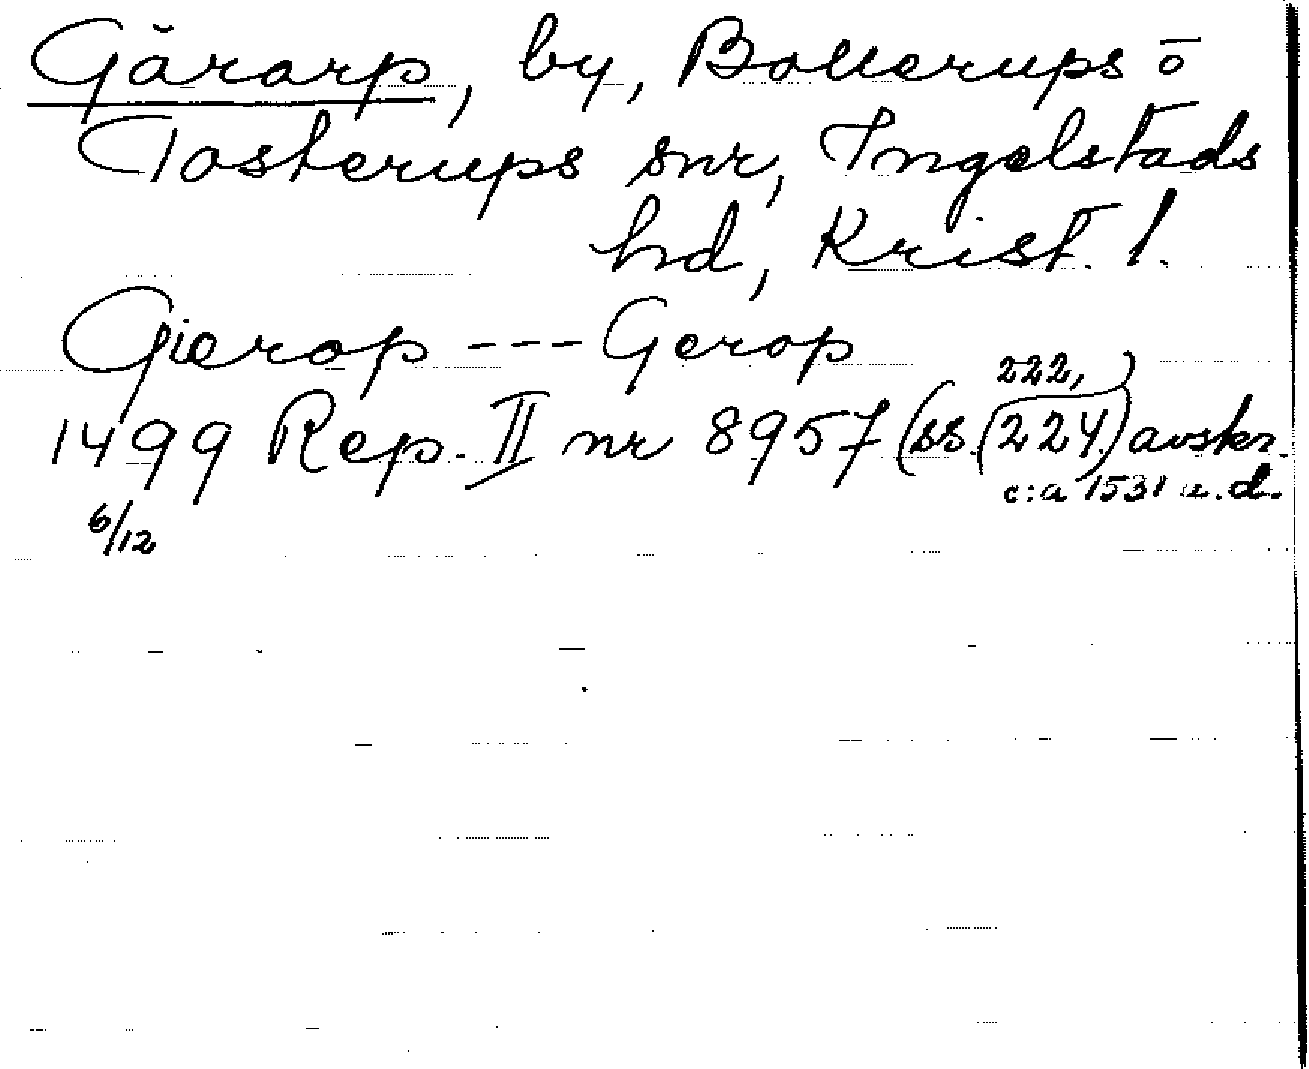 Gärarp, by, Bollerups o
Tosterups snr, Ingelstads
hd, Krist. l.
Gierop --- Gerop
1499 Rep. II nr 8957 (ss. (222, 224)) avskr.
6/12 c:a 1531 a.d.